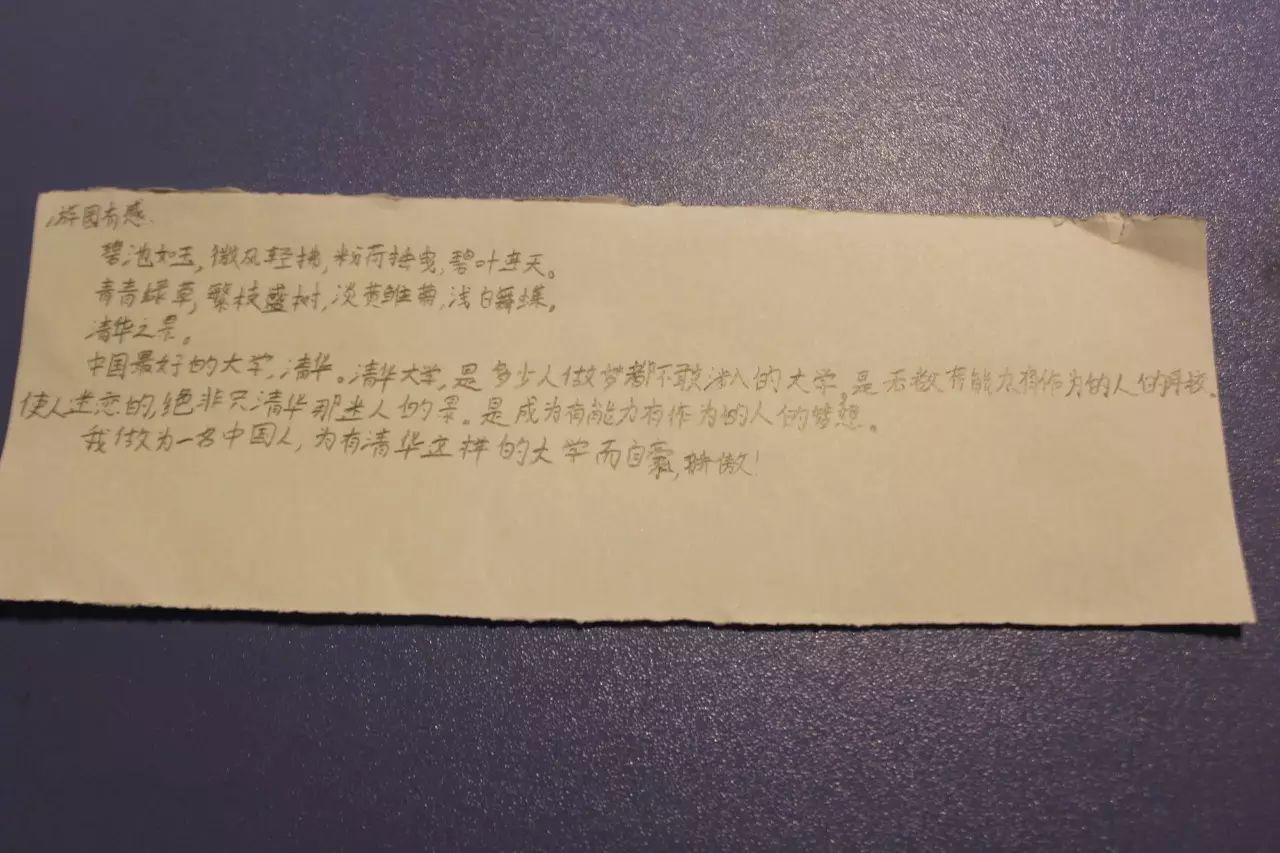 游园有感
碧池如玉,微风轻拂,粉荷摇曳,碧叶连天。
青青绿草,繁枝盛树,淡黄雏菊,浅白舞蝶。
清华之景。
中国最好的大学,清华。清华大学,是多少人做梦都不敢涉入的大学,是无数有能力有作为的人的母校。
使人迷恋的,绝非只清华那迷人的景。是成为有能力有作为的人的梦想。
我做为一名中国人,为有清华这样的大学而自豪,骄傲!